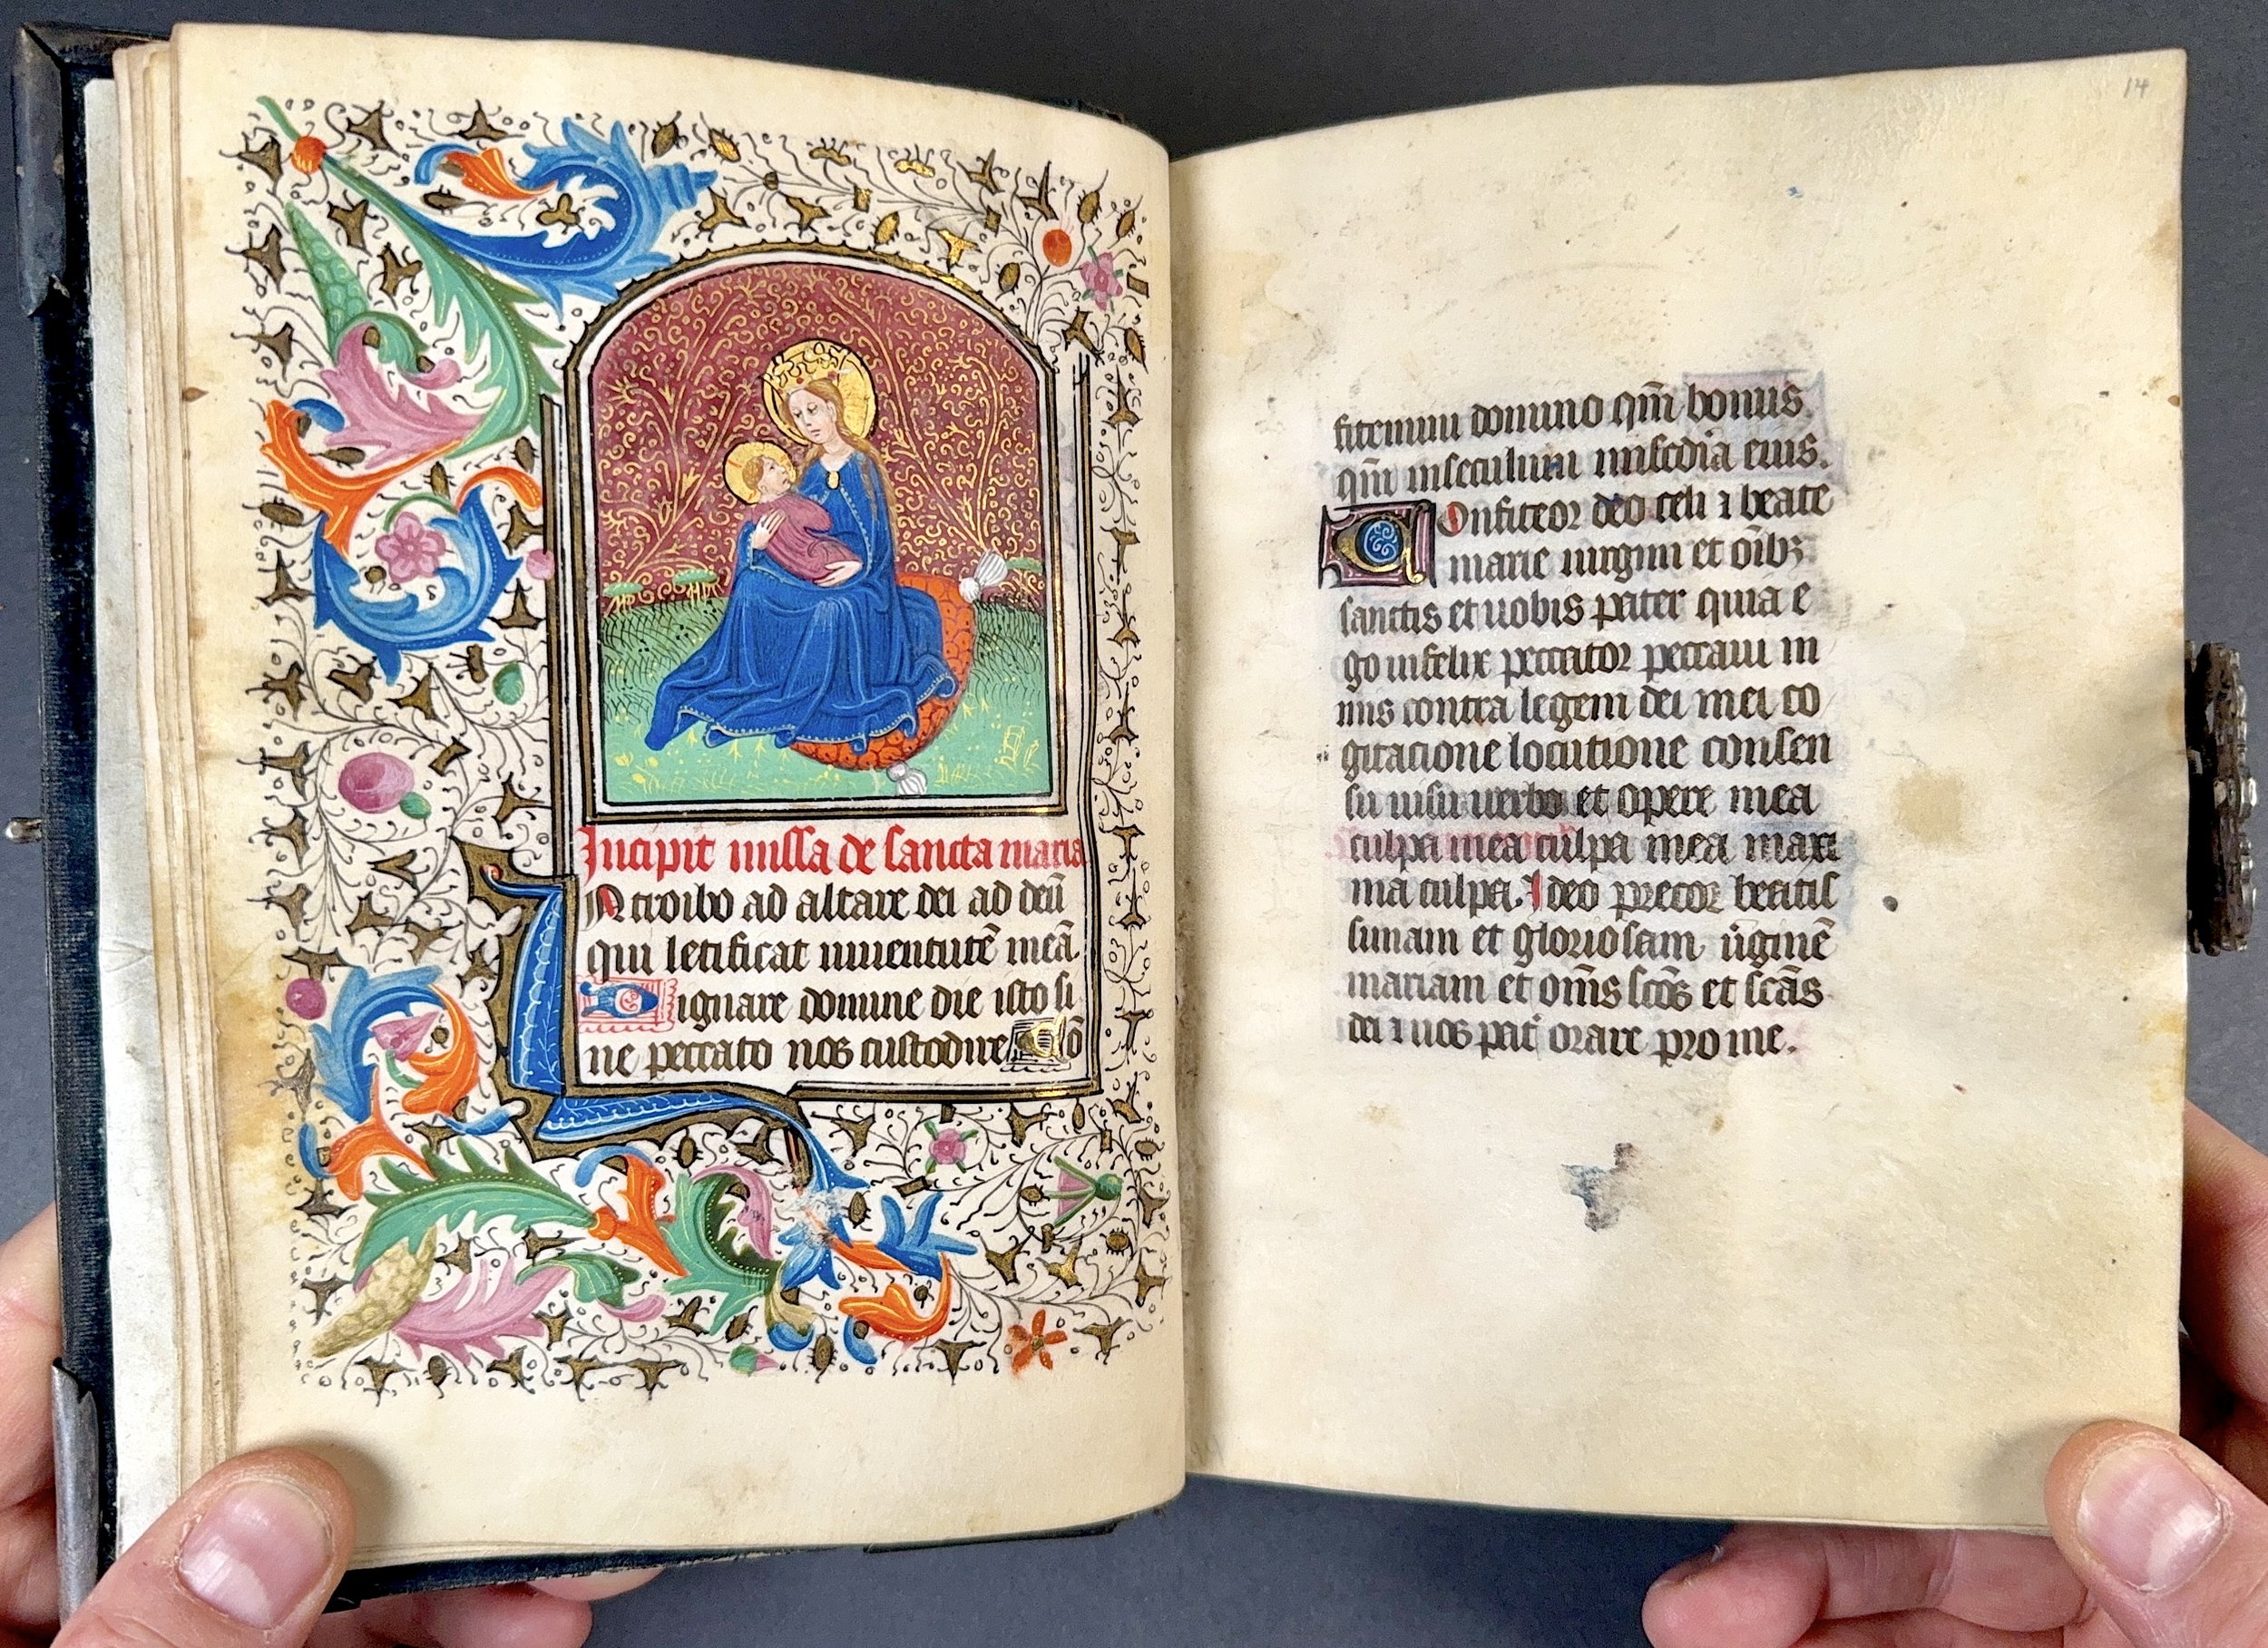 Incipit missa de sancta maria
Introibo ad altare dei ad deū
qui letificat iuuentutē meā.
Dignare domine die isto si
ne peccato nos custodire Cō
14
fitemini domino qm̄ bonus.
qm̄ inseculum miſcd̓ia eius.
Confiteor deo celi ⁊ beate
marie uirgini et oībꝫ
sanctis et uobis pater quia e
go infelix peccator peccaui ni
mis contra legem dei mei co
gitacione locutione consen
su uisu uerbo et opere mea
culpa mea culpa mea maxi
ma culpa. Ideo precor beatis
simam et gloriosam u̓ginē
mariam et om̄s scōs et scās
dei ⁊ uos pat̓ orare pro me.